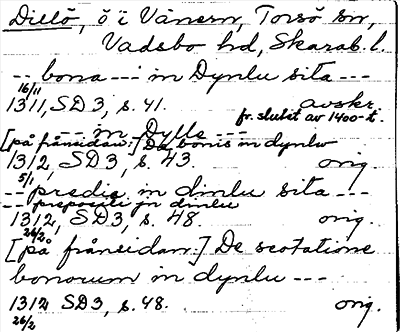 Dillö, ö i Vänern, Torsö sn,
Vadsbo hd, Skarab. l.
-- bona --- in Dynlu sita ---
16/11
1311, SD 3, s. 41. avskr.
fr. slutet av 1400-t.
--- in Dylle ---
[på frånsidan:] De bonis in dynlv
1312, SD 3, s. 43. orig.
5/1
-- predia in dinlu sita ---
-- preposati in dinlu
1312, SD 3, s. 48. orig.
26/2
[på frånsidan:] De scotatione
bonorum in dynlu ---
1312 SD 3, s. 48. orig.
26/2